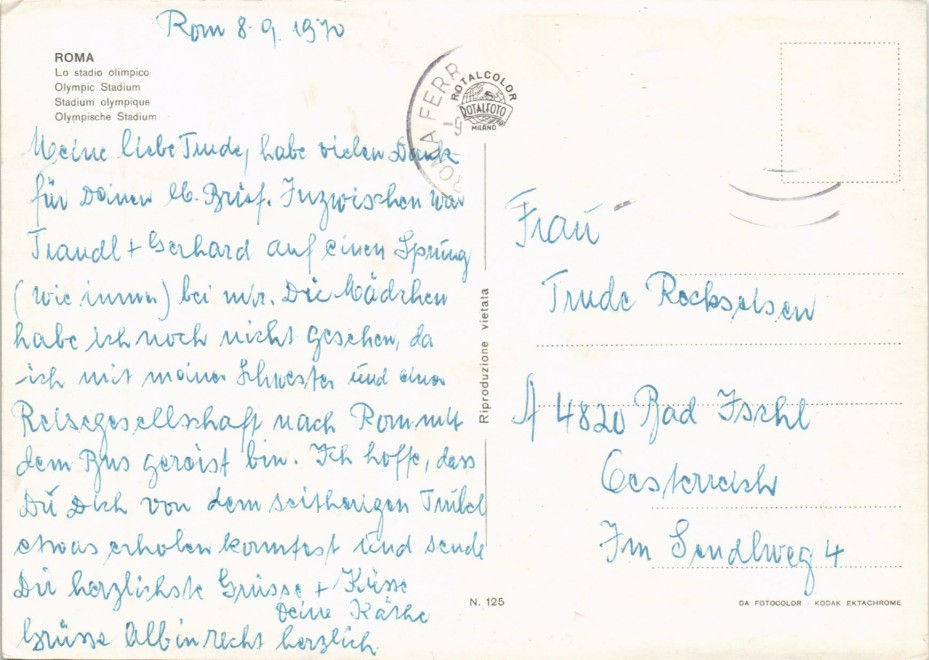 Rom 8.9.1970
ROMA
Lo stadio olimpico
Olympic Stadium
Stadium olympique
Olympische Stadium
Meine liebe Trude, habe vielen Dank
für Deinen lb. Brief. Inzwischen war
Traudl + Gerhard auf einen Sprung
(wie immer) bei mir. Die Mädchen
habe ich noch nicht gesehen, da
ich mit meiner Schwester und einer
Reisegesellschaft nach Rom mit
dem Bus gereist bin. Ich hoffe, dass
Du Dich von dem seitherigen Trubel
etwas erholen konntest und sende
Dir herzlichste Grüsse + Küsse
Deine Käthe
Grüsse Albin recht herzlich
ROMA FERR
-9
ROTALCOLOR
ROTALFOTO
MILANO
Riproduzione vietata
N. 125
Frau
Trude
A 4820 Bad Ischl
Oesterreich
Im Sendlweg 4
DA FOTOCOLOR - KODAK EKTACHROME